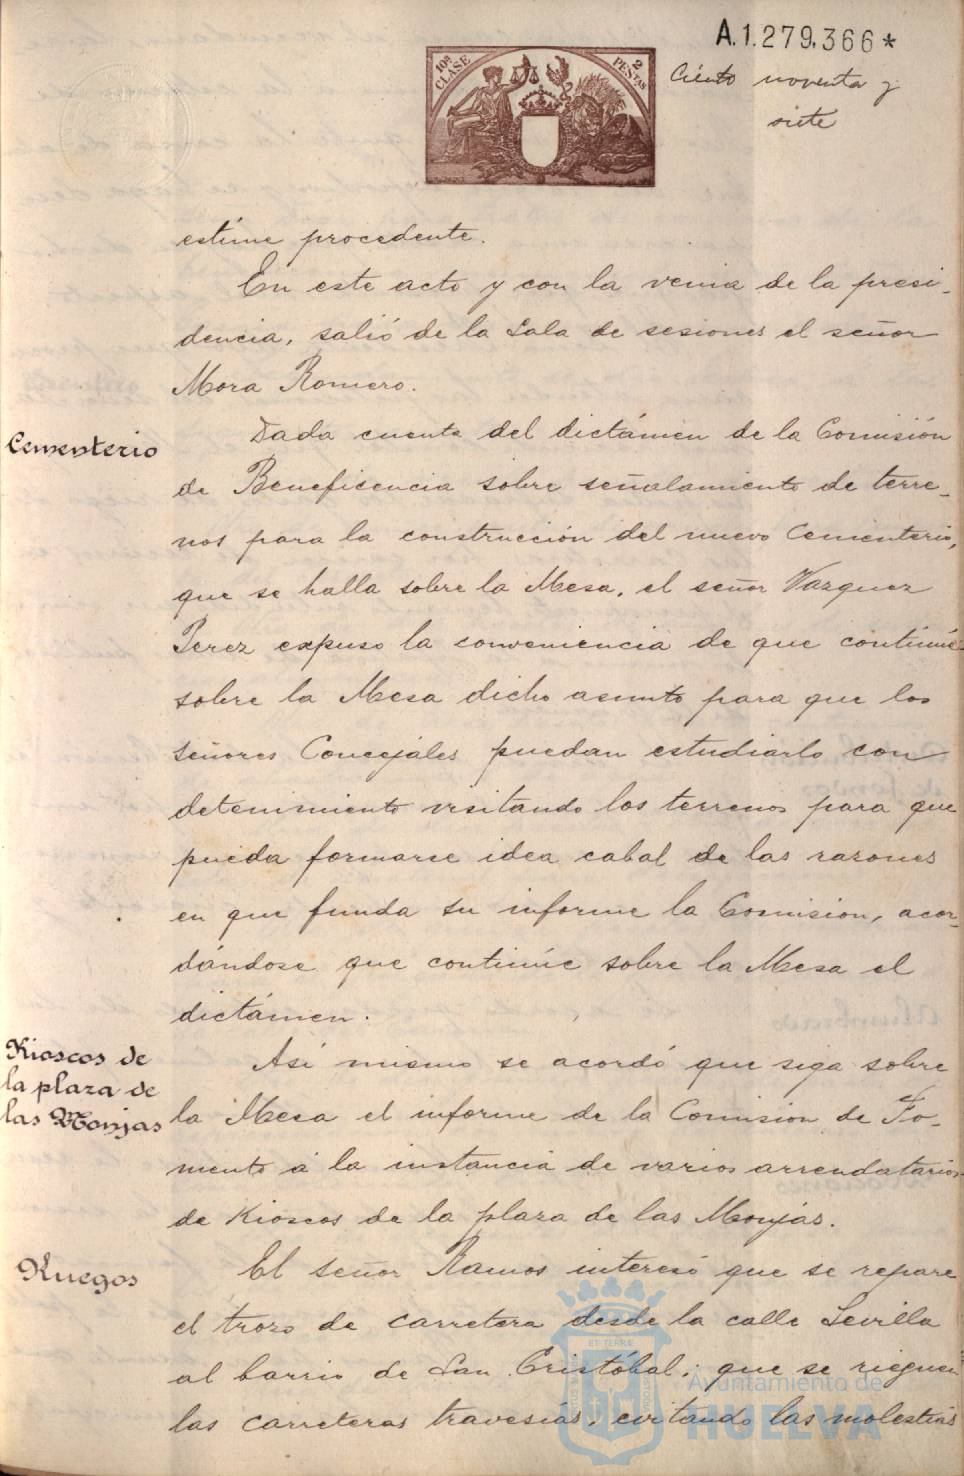 A.1.279.366*
10ª CLASE
2 PESETAS
Ciento noventa y
siete
estime procedente.
En este acto y con la venia de la presi-
dencia, salió de la Sala de sesiones el señor
Mora Romero.
Cementerio
Dada cuenta del dictámen de la Comisión
de Beneficencia sobre señalamiento de terre-
nos para la construcción del nuevo Cementerio,
que se halla sobre la Mesa, el señor Vazquez
Perez expuso la conveniencia de que continúe
sobre la Mesa dicho asunto para que los
señores Concejales puedan estudiarlo con
detenimiento visitando los terrenos para que
pueda formarse idea cabal de las razones
en que funda su informe la Comision, acor-
dándose que continúe sobre la Mesa el
dictámen.
Kioscos de
la plaza de
las Monjas
Así mismo se acordó que siga sobre
la Mesa el informe de la Comision de Fo-
mento á la instancia de varios arrendatarios
de Kioscos de la plaza de las Monjas.
Ruegos
El señor Ramos interesó que se repare
el trozo de carretera desde la calle Sevilla
al barrio de San Cristóbal; que se rieguen
las carreteras travesías, evitando las molestias
Ayuntamiento de
HUELVA